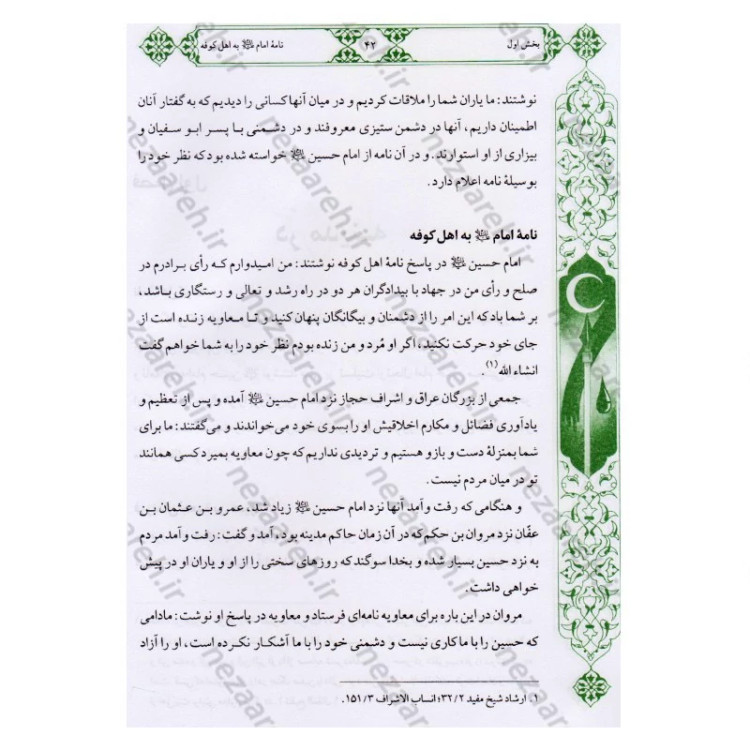 بخش اول
۴۲
نامهٔ امام ﷷ به اهل کوفه
نوشتند: ما یاران شما را ملاقات کردیم و در میان آنها کسانی را دیدیم که به گفتار آنان
اطمینان داریم، آنها در دشمن ستیزی معروفند و در دشمنی با پسر ابو سفیان و
بیزاری از او استوارند. و در آن نامه از امام حسین خواسته شده بود که نظر خود را
بوسیلهٔ نامه اعلام دارد.
نامهٔ امام به اهل کوفه
امام حسین در پاسخ نامهٔ اهل کوفه نوشتند: من امیدوارم که رأی برادرم در
صلح و رأی من در جهاد با بیدادگران هر دو در راه رشد و تعالی و رستگاری باشد،
بر شما باد که این امر را از دشمنان و بیگانگان پنهان کنید و تا معاویه زنده است از
جای خود حرکت نکنید، اگر او مُرد و من زنده بودم نظر خود را به شما خواهم گفت
انشاء الله(۱).
جمعی از بزرگان عراق و اشراف حجاز نزد امام حسین آمده و پس از تعظیم و
یادآوری فضائل و مکارم اخلاقیش او را بسوی خود می‌خواندند و می‌گفتند: ما برای
شما بمنزلهٔ دست و بازو هستیم و تردیدی نداریم که چون معاویه بمیرد کسی همانند
تو در میان مردم نیست.
و هنگامی که رفت و آمد آنها نزد امام حسین زیاد شد، عمرو بن عثمان بن
عفّان نزد مروان بن حکم که در آن زمان حاکم مدینه بود، آمد و گفت: رفت و آمد مردم
به نزد حسین بسیار شده و بخدا سوگند که روزهای سختی را از او و یاران او در پیش
خواهی داشت.
مروان در این باره برای معاویه نامه‌ای فرستاد و معاویه در پاسخ او نوشت: مادامی
که حسین را با ما کاری نیست و دشمنی خود را با ما آشکار نکرده است، او را آزاد
۱. ارشاد شیخ مفید ۳۲/۲؛ انساب الاشراف ۱۵۱/۳.
nezaareh.ir